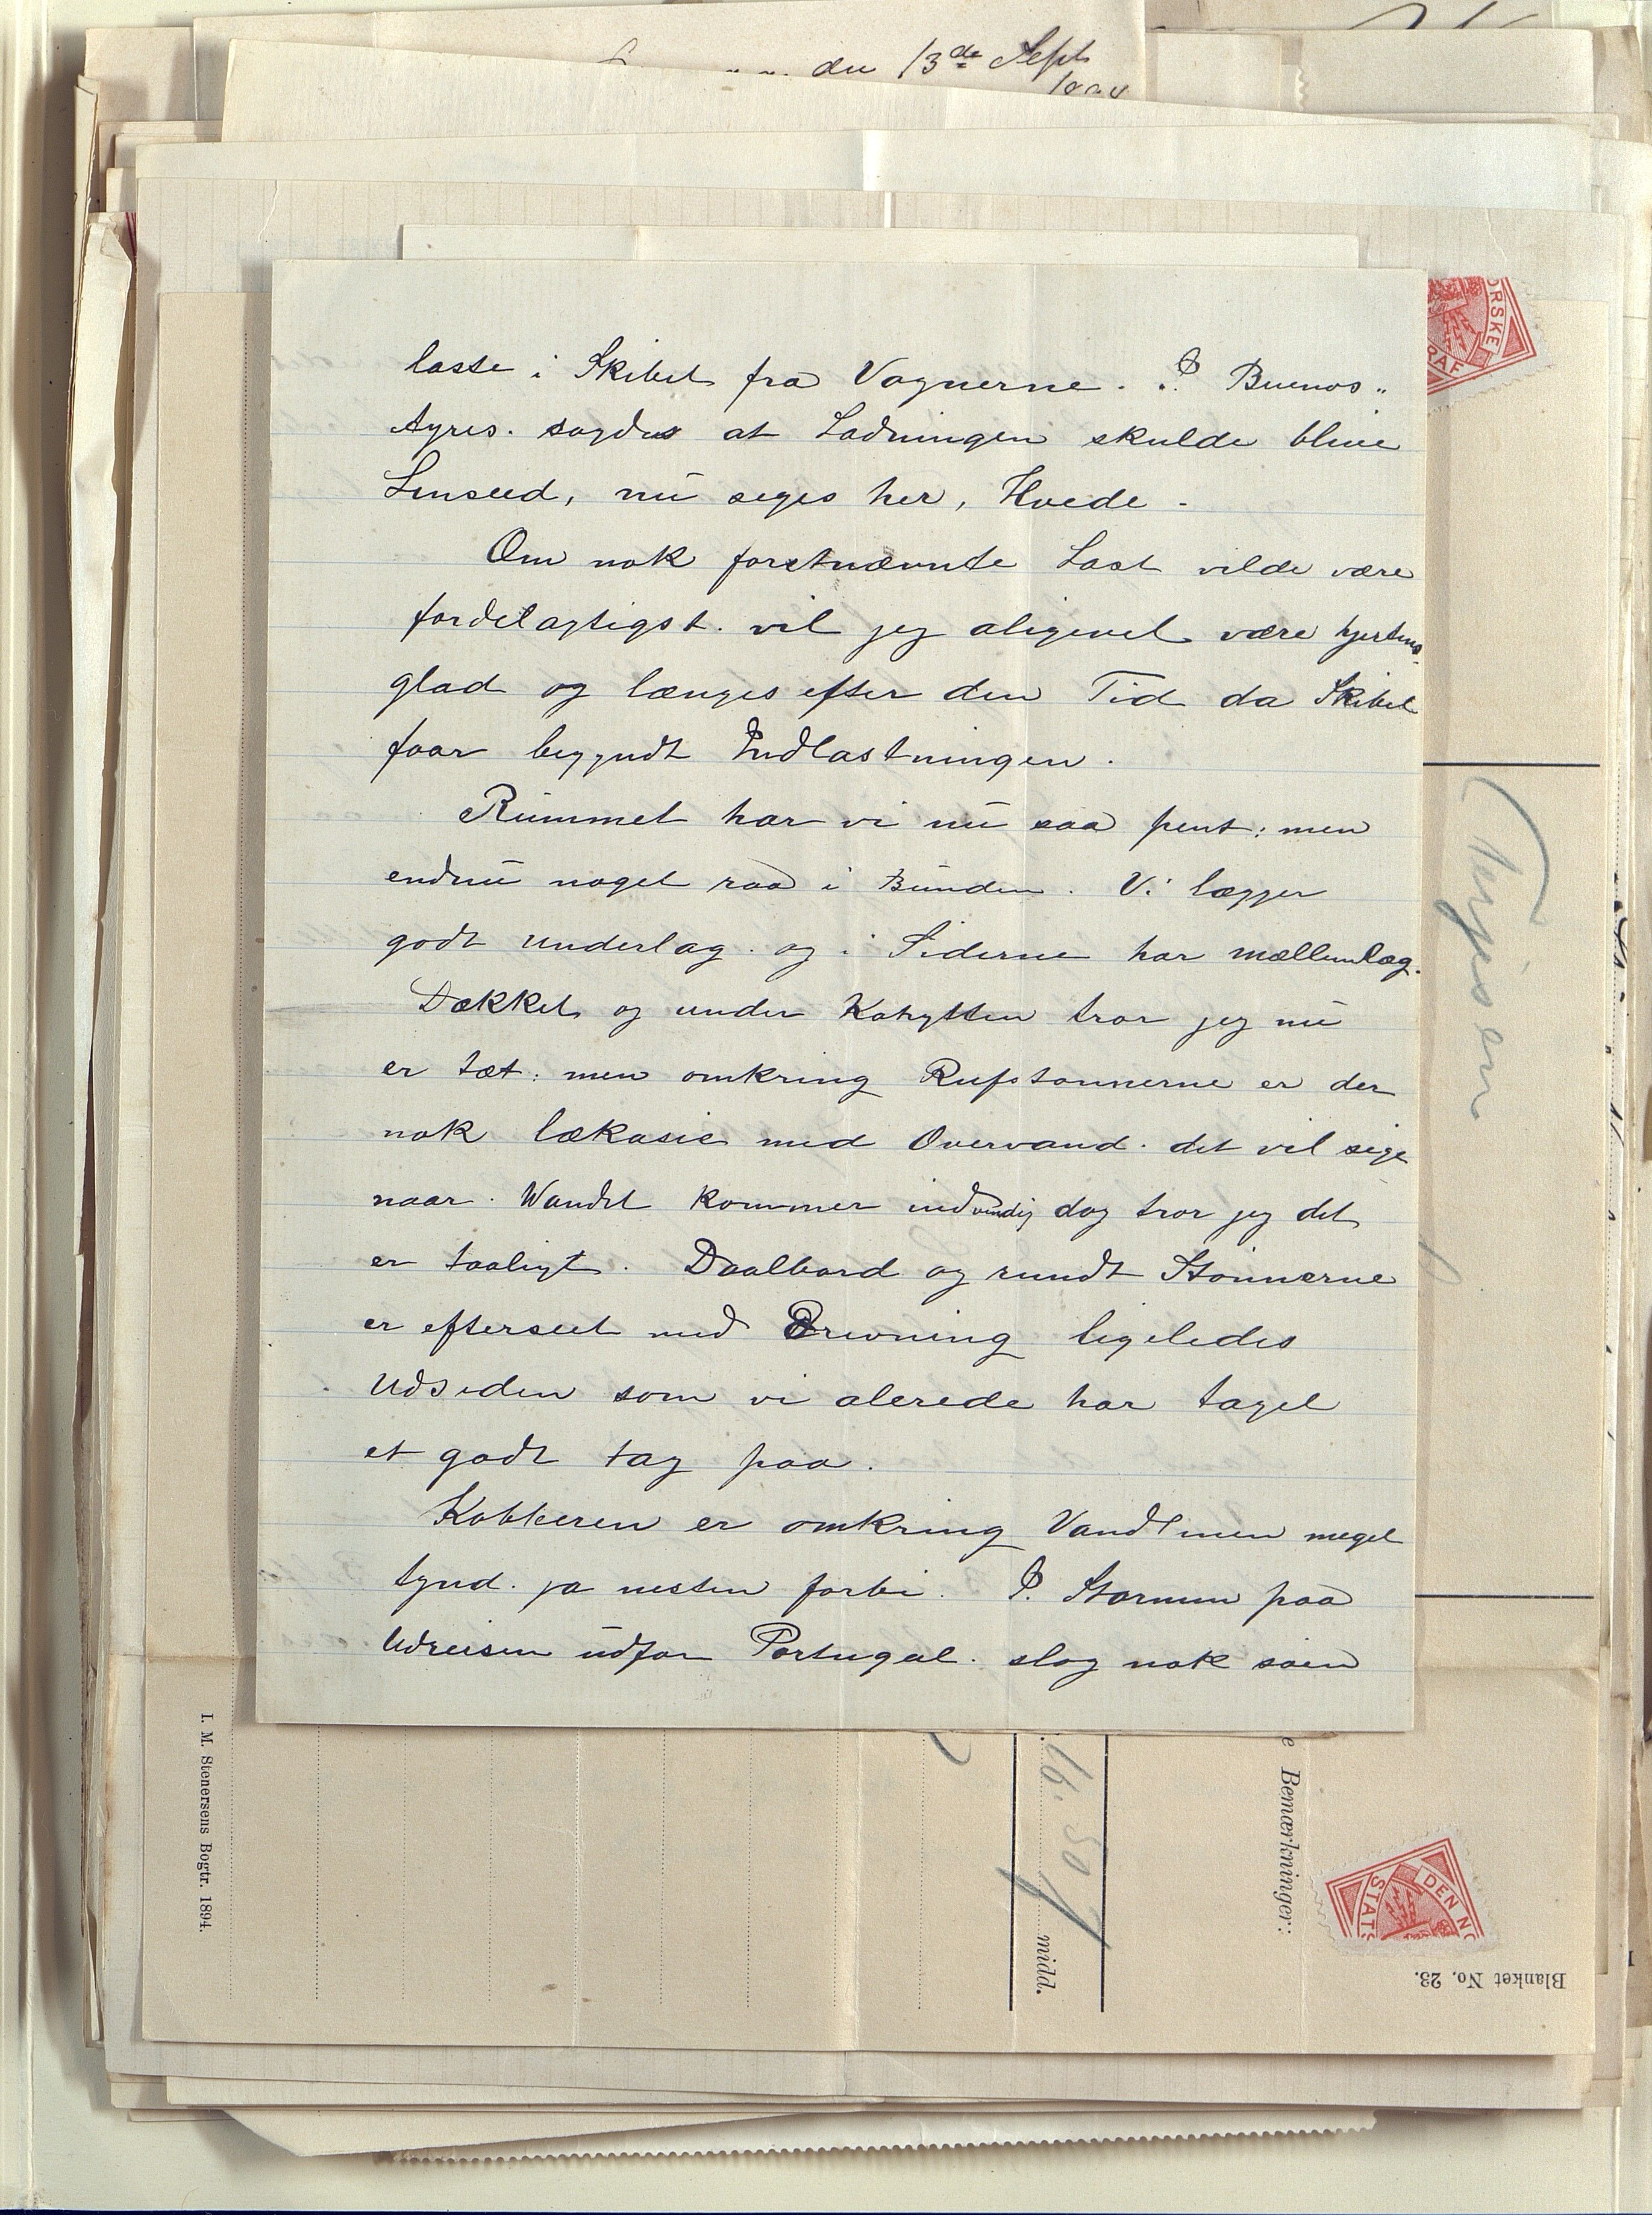 den 13de Sept
laste i Skibet fra Vognerne. I Buenos„
Ayres. sagdes at Ladningen skulde blive
Linseed, nu seges her, Hvede.
Om nok forstnævnte Last vilde være
fordelagtigst. vil jeg aligevel være hjertens-
glad og længes efter den Tid da Skibet
faar begyndt Indlastningen.
Rummet har vi nu saa pent: men
endnu noget raa i Bunden. Vi lægger
godt underlag. og i Siderne har mællemlag.
Dækket og under Kahytten tror jeg nu
er tæt: men omkring Rufstonnerne er der
nok lækasie med Overvand. det vil sige
naar. Wandet kommer indvendig dog tror jeg det
er taaligt. Daalbord og rundt Stonnerne
er efterseet med Drevning ligeledes
Udsiden som vi alerede har taget
et godt tag paa.
Kobberen er omkring Vandlinien meget
tynd. ja nesten forbi. I. Stormen paa
Udreisen udfor Portugal. slog nok søen
ORSKE
RAF
Terjesen
I. M. Stenersens Bogtr. 1894.
16. 50
midd.
Bemærkninger:
DEN NO
STATS
Blanket No. 23.